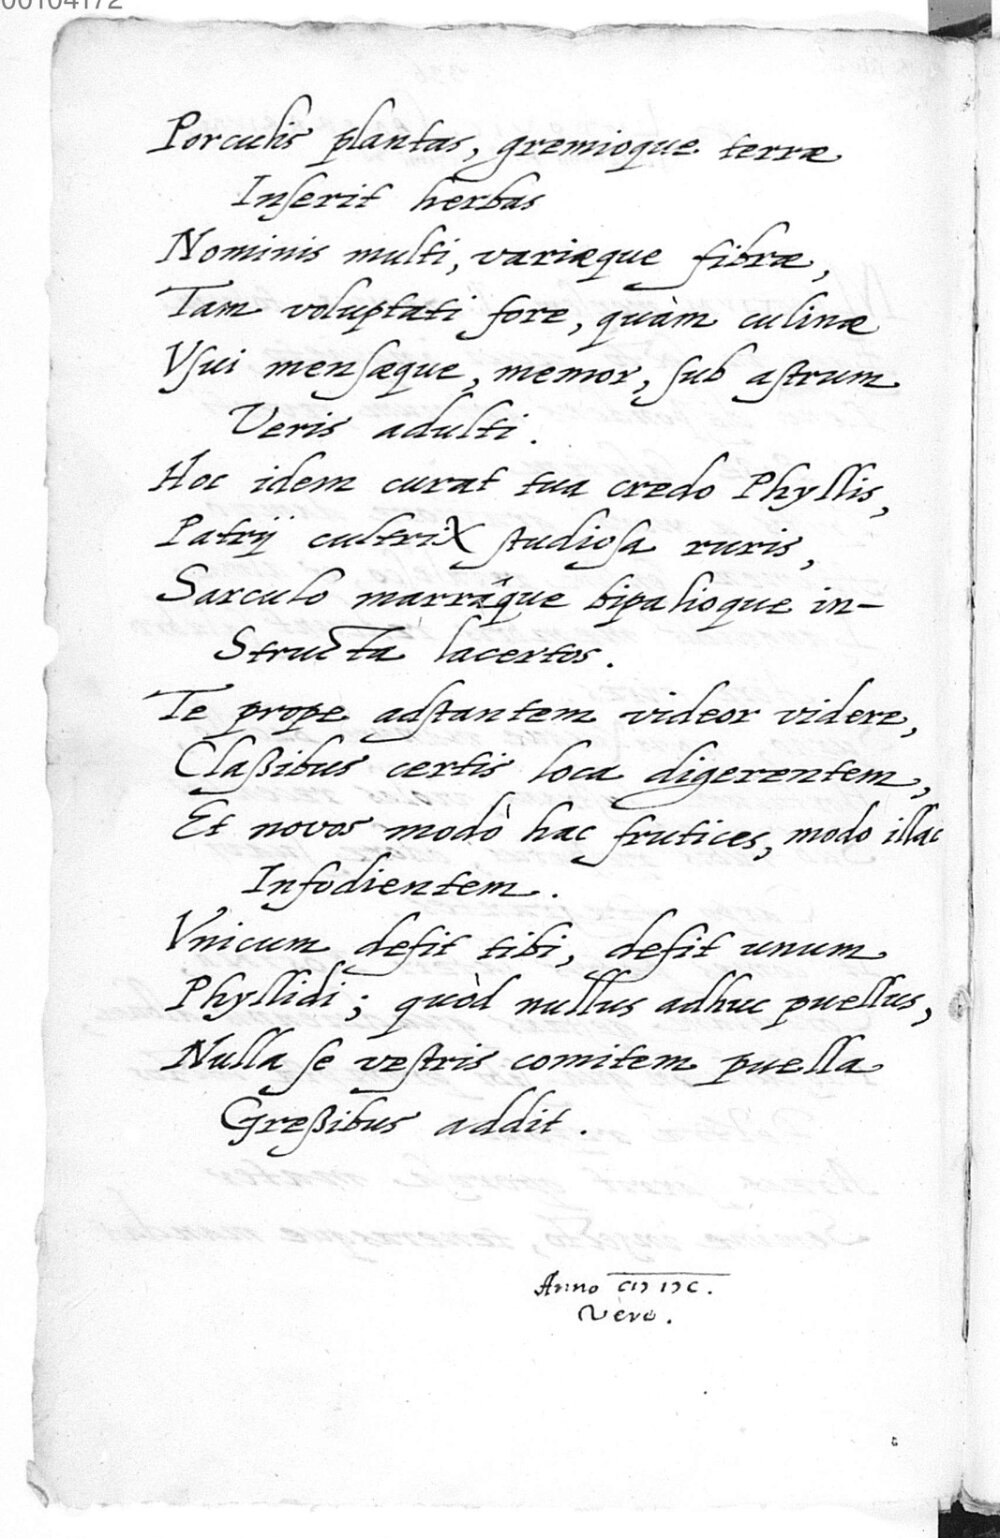 00104172
Porculis plantas, gremioque terræ
Inserit herbas
Nominis multi, variæque fibræ,
Tam voluptati fore, quàm culinæ
Vsui mensæque, memor, sub astrum
Veris adulti.
Hoc idem curat tua credo Phyllis,
Patrij cultrix studiosa ruris,
Sarculo marrâque bipalioque in-
Structa lacertos.
Te prope adstantem videor videre,
Claßibus certis loca digerentem,
Et novos modò hac frutices, modo illac
Infodientem.
Vnicum defit tibi, defit unum
Phyllidi; quòd nullus adhuc puellus,
Nulla se vestris comitem puella
Greßibus addit.
Anno CIↃ IↃC.
Vere.